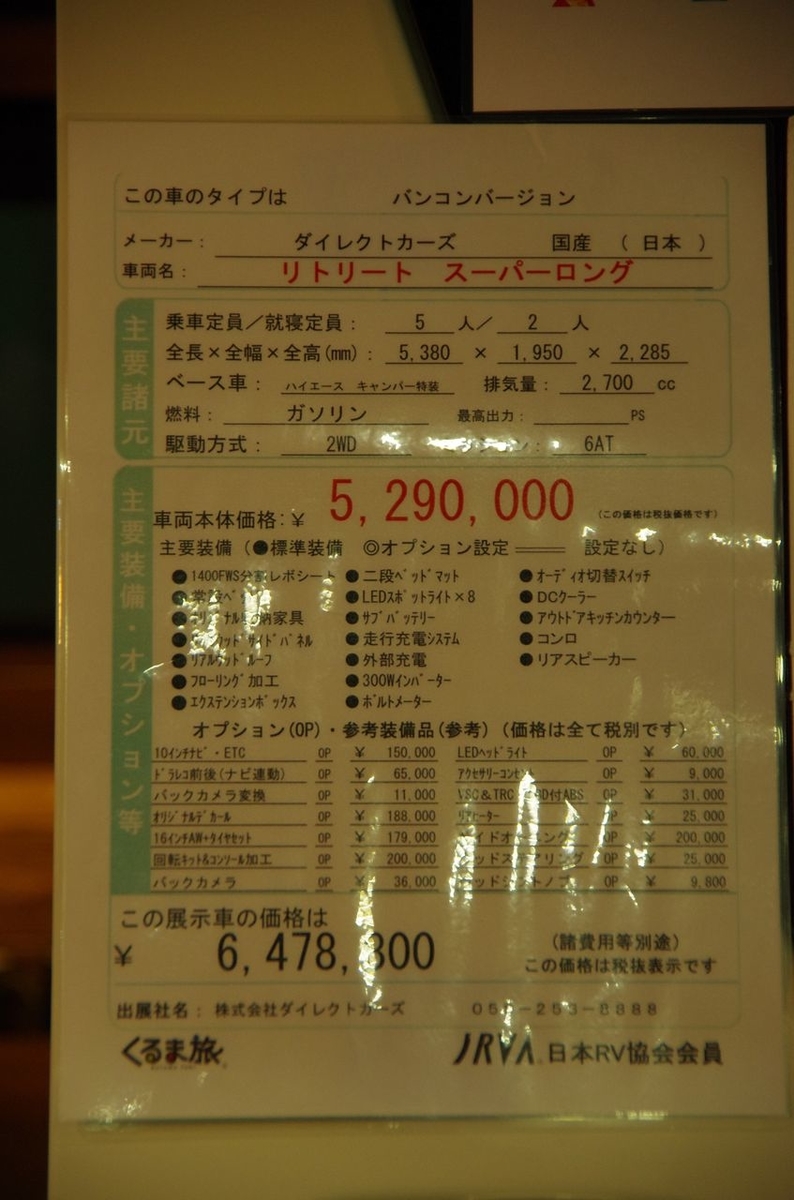 この車のタイプは バンコンバージョン
メーカー： ダイレクトカーズ 国産 （ 日本 ）
車両名： リトリート スーパーロング
主要諸元
乗車定員／就寝定員： 5 人／ 2 人
全長×全幅×全高(mm)： 5,380 × 1,950 × 2,285
ベース車： ハイエース キャンパー特装 排気量： 2,700 cc
燃料： ガソリン 最高出力： PS
駆動方式： 2WD 6AT
主要装備・オプション等
車両本体価格：￥ 5,290,000 （この価格は税抜価格です）
主要装備（●標準装備 ◎オプション設定 ―― 設定なし）
●1400FWS分割レボシート ●二段ﾍﾞｯﾄﾞﾏｯﾄ ●ｵｰﾃﾞｨｵ切替ｽｲｯﾁ
●LEDｽﾎﾟｯﾄﾗｲﾄ×8 ●DCｸｰﾗｰ
納家具 ●ｻﾌﾞﾊﾞｯﾃﾘｰ ●ｱｳﾄﾄﾞｱｷｯﾁﾝｶｳﾝﾀｰ
ｻｲﾄﾞﾊﾟﾈﾙ ●走行充電ｼｽﾃﾑ ●コンロ
●ﾘｱﾙｳｯﾄﾞﾙｰﾌ ●外部充電 ●リアスピーカー
●ﾌﾛｰﾘﾝｸﾞ加工 ●300Wｲﾝﾊﾞｰﾀｰ
●ｴｸｽﾃﾝｼｮﾝﾎﾞｯｸｽ ●ﾎﾞﾙﾄﾒｰﾀｰ
オプション(OP)・参考装備品(参考)（価格は全て税別です）
10ｲﾝﾁﾅﾋﾞ・ETC OP ￥ 150,000 LEDﾍｯﾄﾞﾗｲﾄ OP ￥ 60,000
ﾄﾞﾗﾚｺ前後(ナビ連動) OP ￥ 65,000 ｱｸｾｻﾘｰｺﾝｾﾝﾄ OP ￥ 9,000
バックカメラ変換 OP ￥ 11,000 VSC＆TRC 付ABS OP ￥ 31,000
ｵﾘｼﾞﾅﾙﾃﾞｶｰﾙ OP ￥ 188,000 ﾘｱﾋｰﾀｰ OP ￥ 25,000
16ｲﾝﾁAW+ﾀｲﾔｾｯﾄ OP ￥ 179,000 OP ￥ 200,000
回転ｷｯﾄ&ｺﾝｿｰﾙ加工 OP ￥ 200,000 OP ￥ 25,000
バックカメラ OP ￥ 36,000 OP ￥ 9,800
この展示車の価格は
￥ 6,478,800 （諸費用等別途）
この価格は税抜表示です
出展社名： 株式会社ダイレクトカーズ 05 -253-8888
くるま旅 JRVA 日本RV協会会員